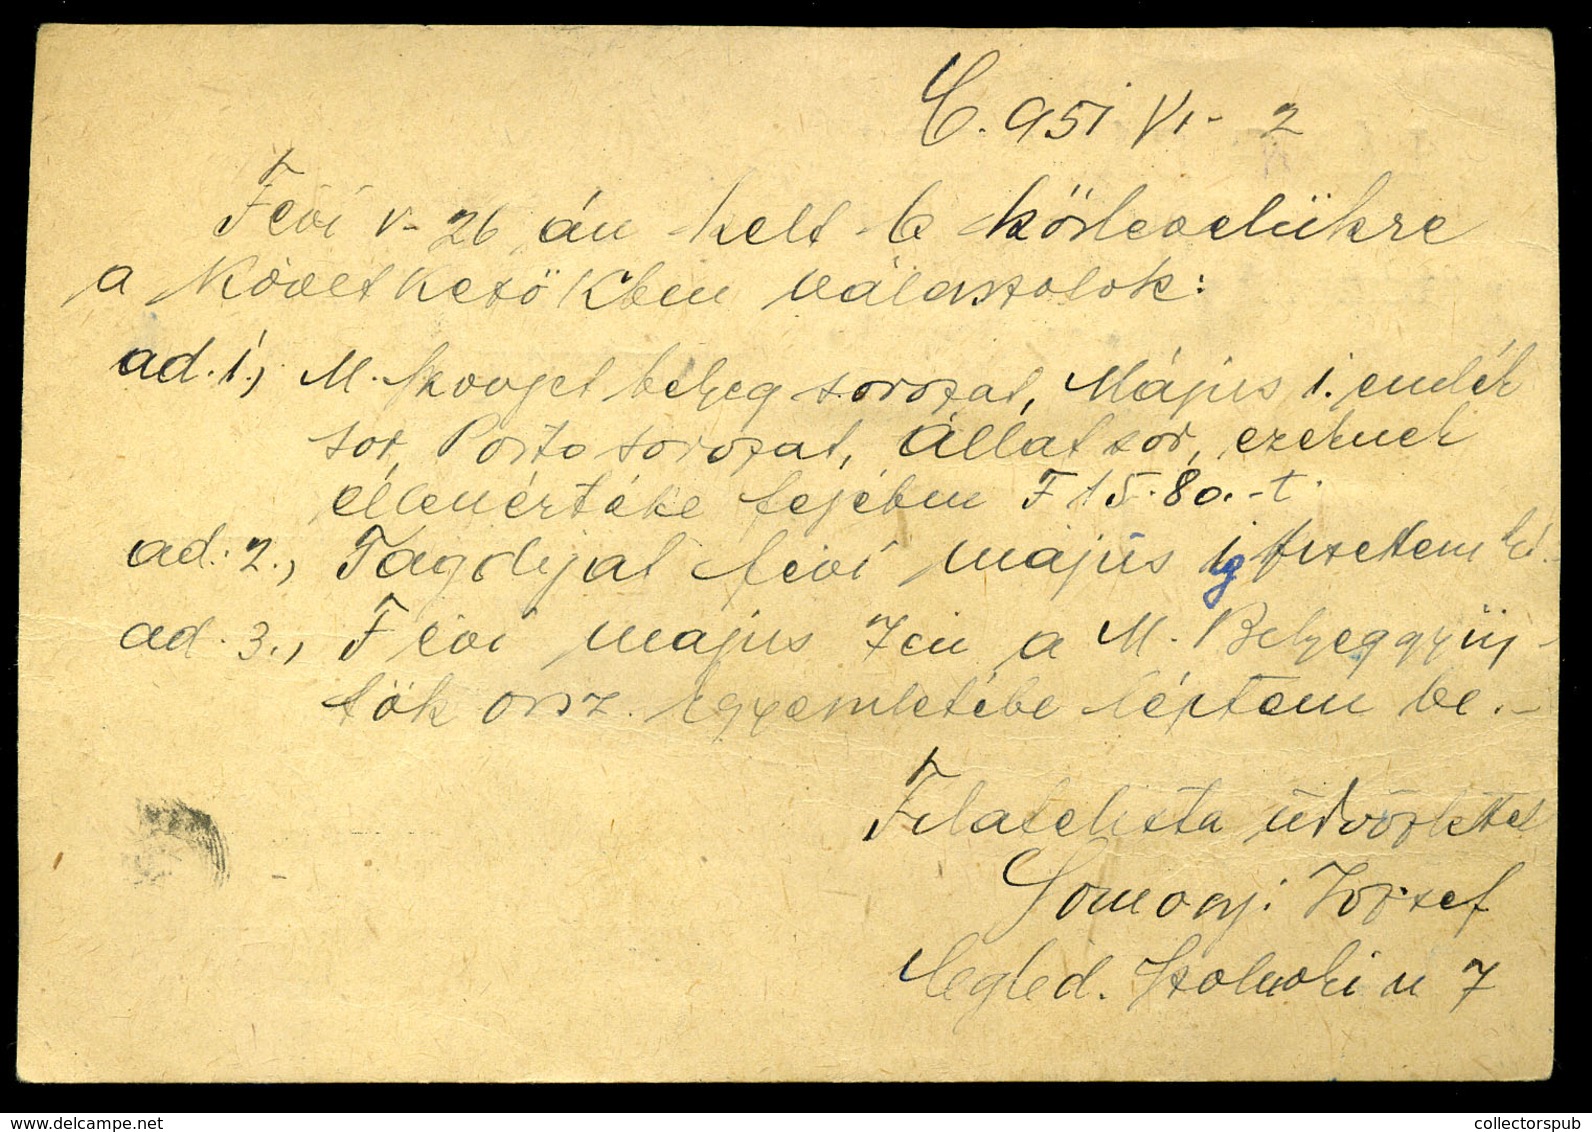 C. 951 VI - 2
Févi V - 26 án kelt b körlevelükre
a következőkben válaszolok:
ad. 1., M. szovjet bélyeg sorozat, Május 1. emlék
sor, Porto sorozat, Állat sor, ezeknek
ellenértéke fejében F 15.80.-t.
ad. 2., Tagdíjat févi május ig fizettem ki.
ad. 3., Févi május 7én a M. Bélyeggyüj-
tök orsz. egyesületébe léptem be.-
Filatelista üdvözlettel
Somogyi József
Cegléd. Szolnoki u 7
collectorspub